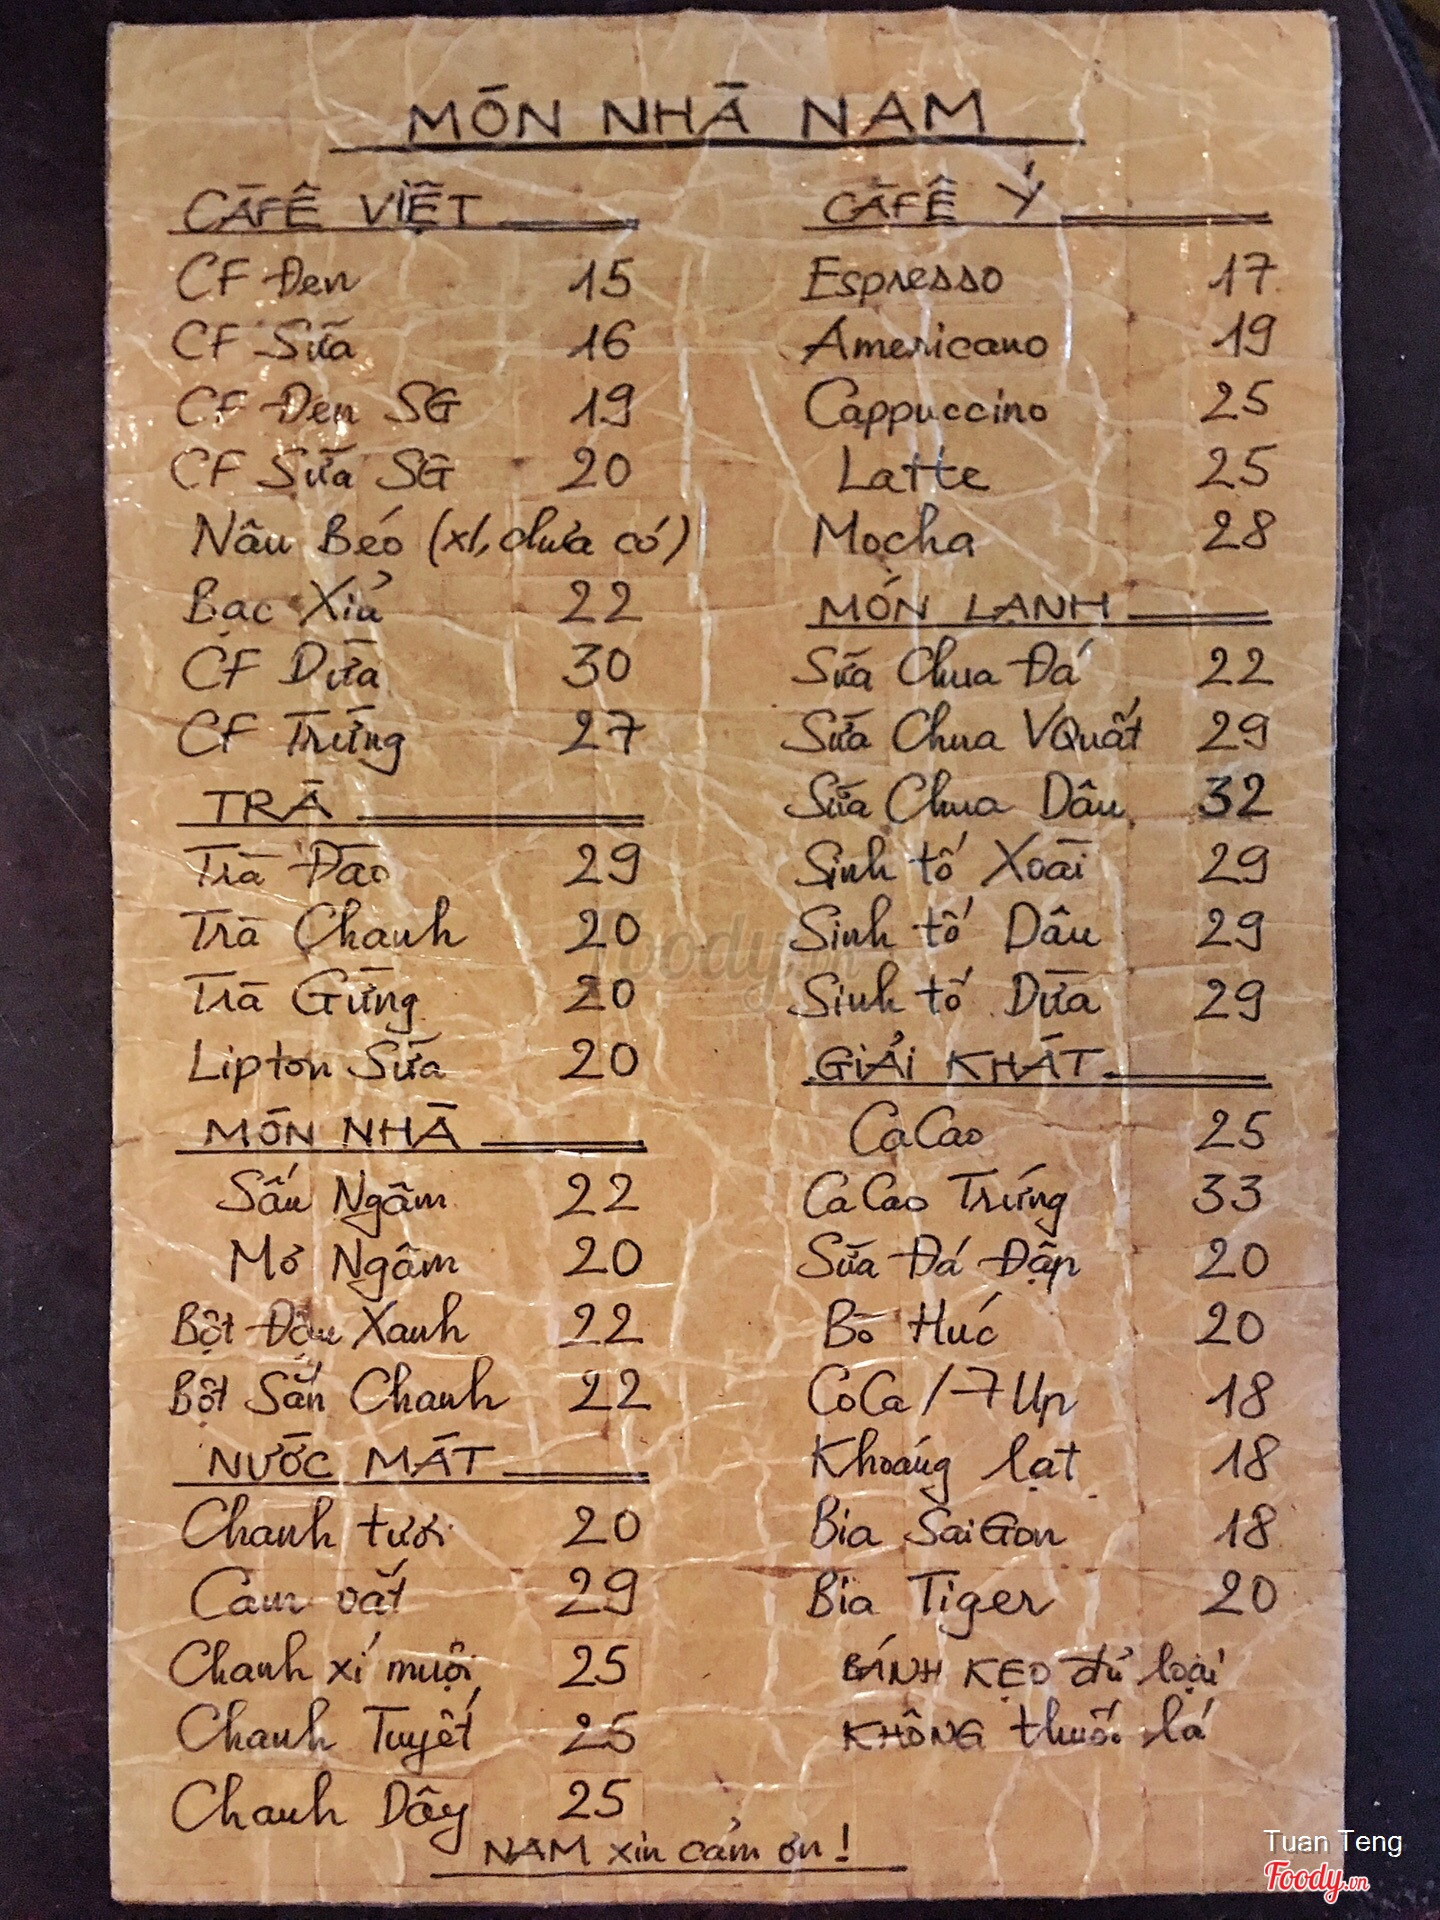 MÓN NHÀ NAM
CÀFÊ VIỆT
CF Đen 15
CF Sữa 16
CF Đen SG 19
CF Sữa SG 20
Nâu Béo (xl, chưa có)
Bạc Xỉu 22
CF Dừa 30
CF Trứng 27
TRÀ
Trà Đào 29
Trà Chanh 20
Trà Gừng 20
Lipton Sữa 20
MÓN NHÀ
Sấu Ngâm 22
Mơ Ngâm 20
Bột Đậu Xanh 22
Bột Sắn Chanh 22
NƯỚC MÁT
Chanh tươi 20
Cam vắt 29
Chanh xí muội 25
Chanh Tuyết 25
Chanh Dây 25
CÀFÊ Ý
Espresso 17
Americano 19
Cappuccino 25
Latte 25
Mocha 28
MÓN LẠNH
Sữa Chua Đá 22
Sữa Chua VQuất 29
Sữa Chua Dâu 32
Sinh tố Xoài 29
Sinh tố Dâu 29
Sinh tố Dừa 29
GIẢI KHÁT
CaCao 25
CaCao Trứng 33
Sữa Đá Đập 20
Bò Húc 20
CoCa / 7 Up 18
Khoáng lạt 18
Bia SaiGon 18
Bia Tiger 20
BÁNH KẸO đủ loại
KHÔNG thuốc lá
NAM xin cảm ơn!
foody.vn
Tuan Teng
Foody.vn